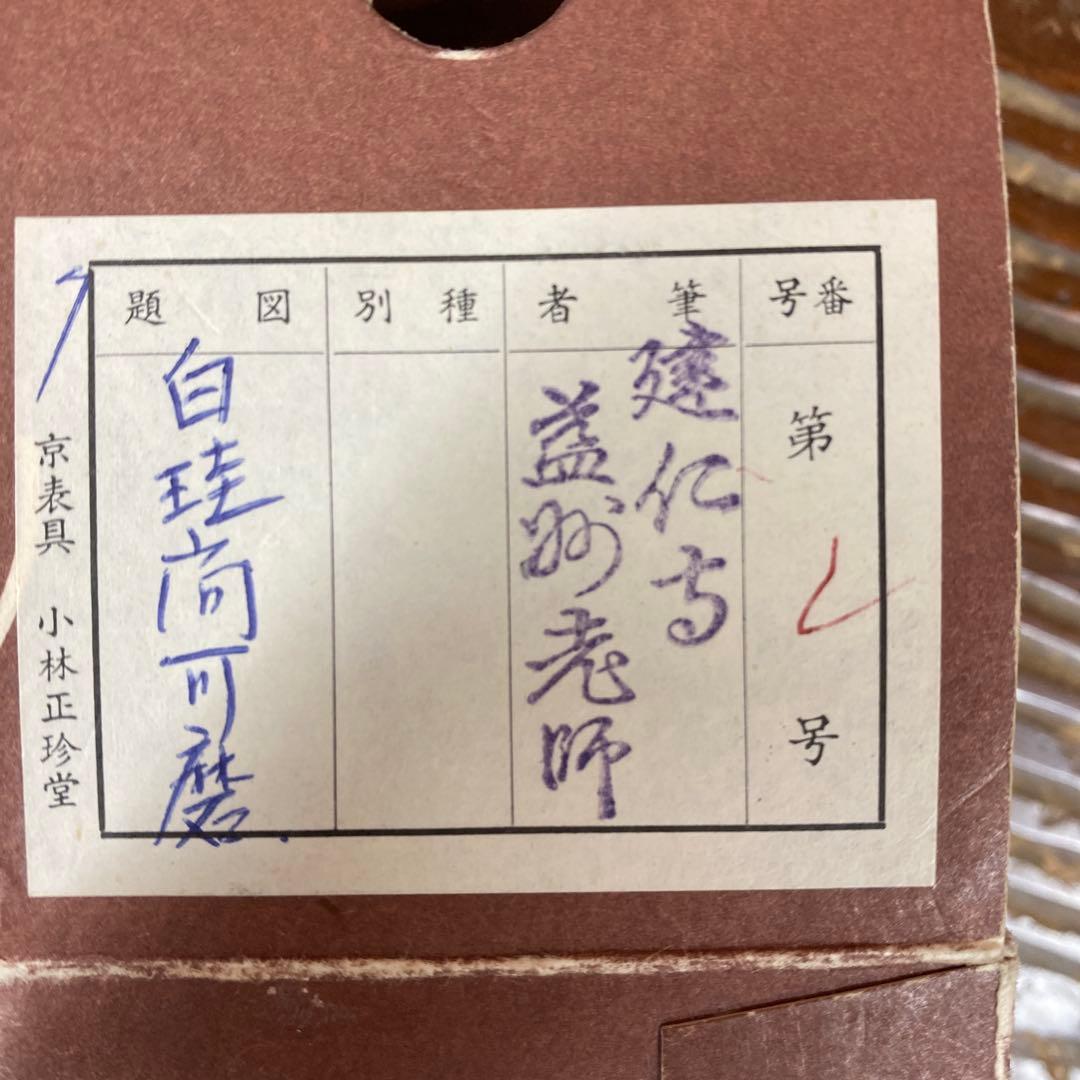 番号
第
号
筆者
建仁寺
益州老師
種別
図題
白珪尚可磨
京表具 小林正珍堂